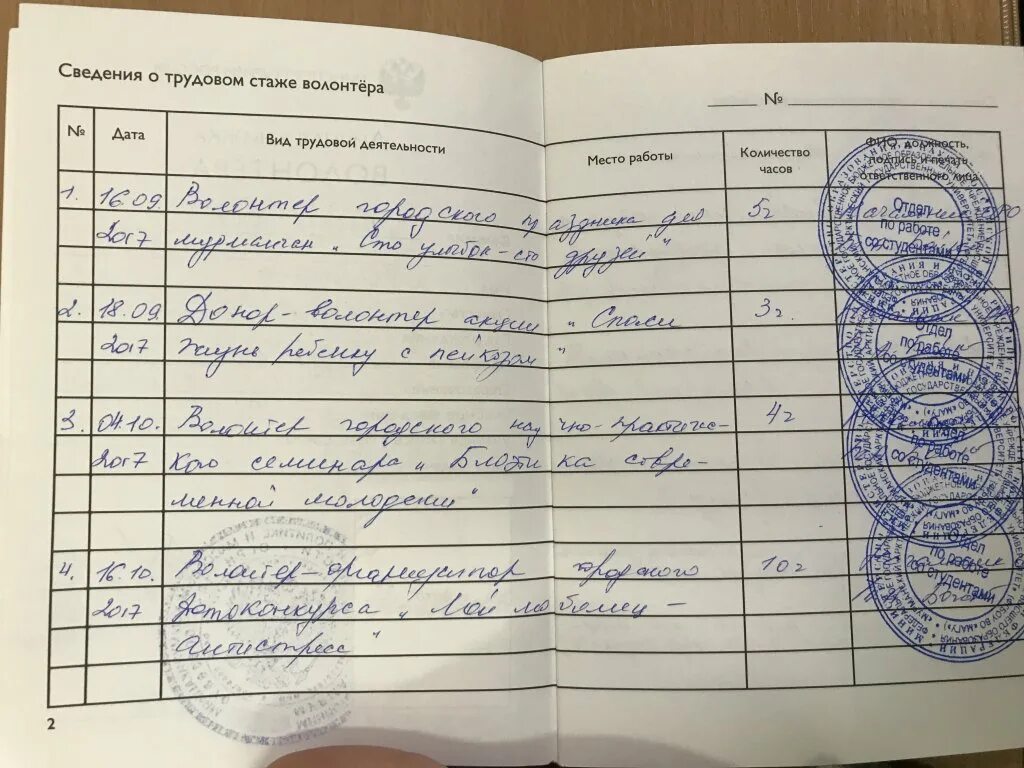 Сведения о трудовом стаже волонтёра
№
№ Дата Вид трудовой деятельности Место работы Количество часов ФИО, должность, подпись и печать ответственного лица
1. 16.09 Волонтер городского праздника для 5г
2017 мурманчан "Сто улыбок - сто друзей"
2. 18.09 Донор-волонтер акции "Спаси 3г.
2017 жизнь ребенку с лейкозом"
3. 04.10. Волонтер городского научно-практичес- 4г
2017 кого семинара "Биоэтика совре-
менной молодежи"
4. 16.10. Волонтер-организатор городского 10г
2017 фотоконкурса "Мой любимец -
антистресс"
Отдел
по работе
со студентами
Отдел
по работе
со студентами
Отдел
по работе
со студентами
Отдел
по работе
со студентами
2